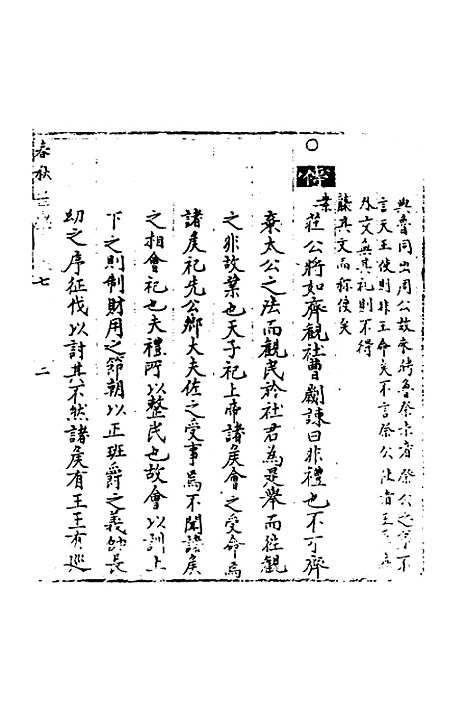 與魯同出周公故來聘魯祭宗者祭公之寄不
言天王使則非王命矣不言祭公
外交無其礼則不得
其文而称使矣
○傳
莊公將如齊觀社曹劌諫曰非禮也不可齊
棄太公之法而觀民於社君為是舉而往觀
之非故業也天子祀上帝諸侯會之受命焉
諸侯祀先公卿大夫佐之受事焉不聞諸侯
之相會祀也夫禮所以整民也故會以訓上
下之則制財用之節朝以正班爵之義帥長
幼之序征伐以討其不然諸侯有王王有巡
春秋 七 二